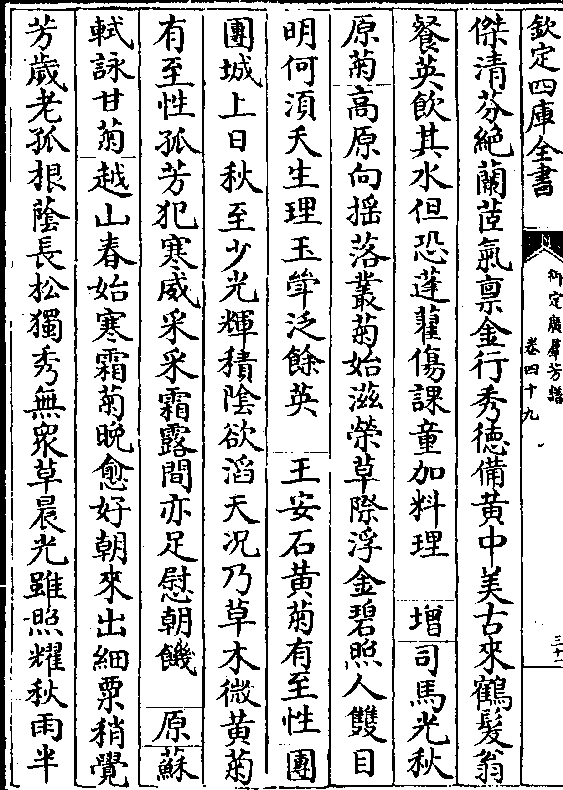 欽定四庫全書
御定廣羣芳譜
卷四十九
三十一
傑清芬絶蘭茝氣禀金行秀德備黃中美古來鶴髮翁
餐英飲其水但恐蓬藋傷課童加料理 增 司馬光秋
原菊高原向揺落叢菊始滋榮草際浮金碧照人雙目
明何須夭生理玉斝泛餘英 王安石黃菊有至性 團
團城上日秋至少光輝積陰欲滔天况乃草木微黃菊
有至性孤芳犯寒威采采霜露間亦足慰朝饑 原蘇
軾詠甘菊越山春始寒霜菊晚愈好朝來出細粟稍覺
芳歲老孤根蔭長松獨秀無衆草晨光雖照耀秋雨半